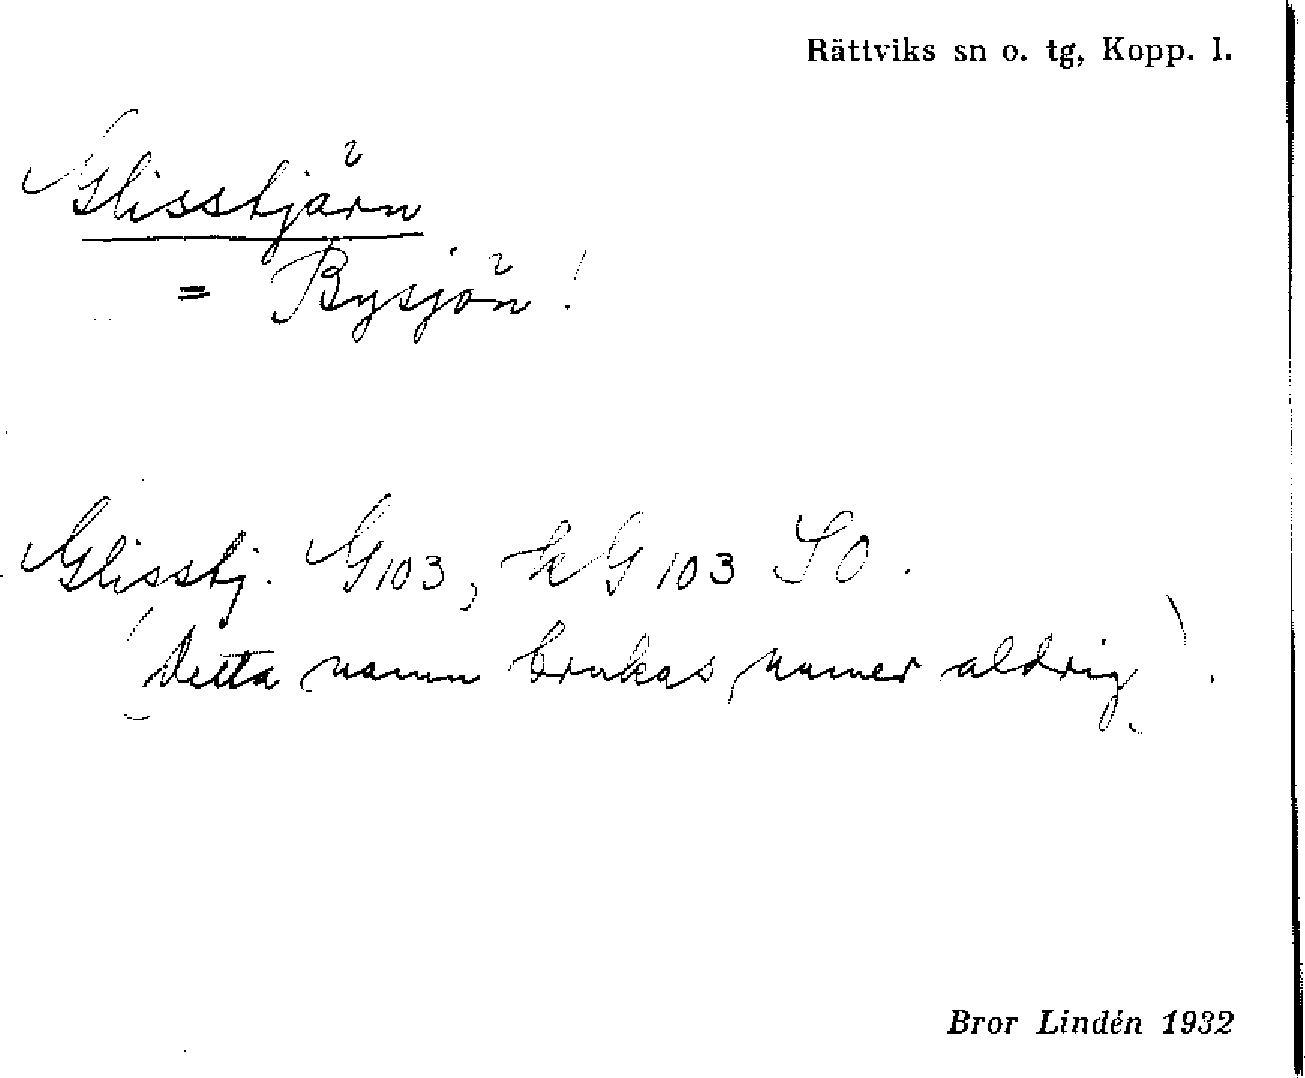 Rättviks sn o. tg, Kopp. l.
Glisstjärn
= Bysjön!
Glisstj. G103, kG 103 SO.
(Detta namn brukas numer aldrig).
Bror Lindén 1932